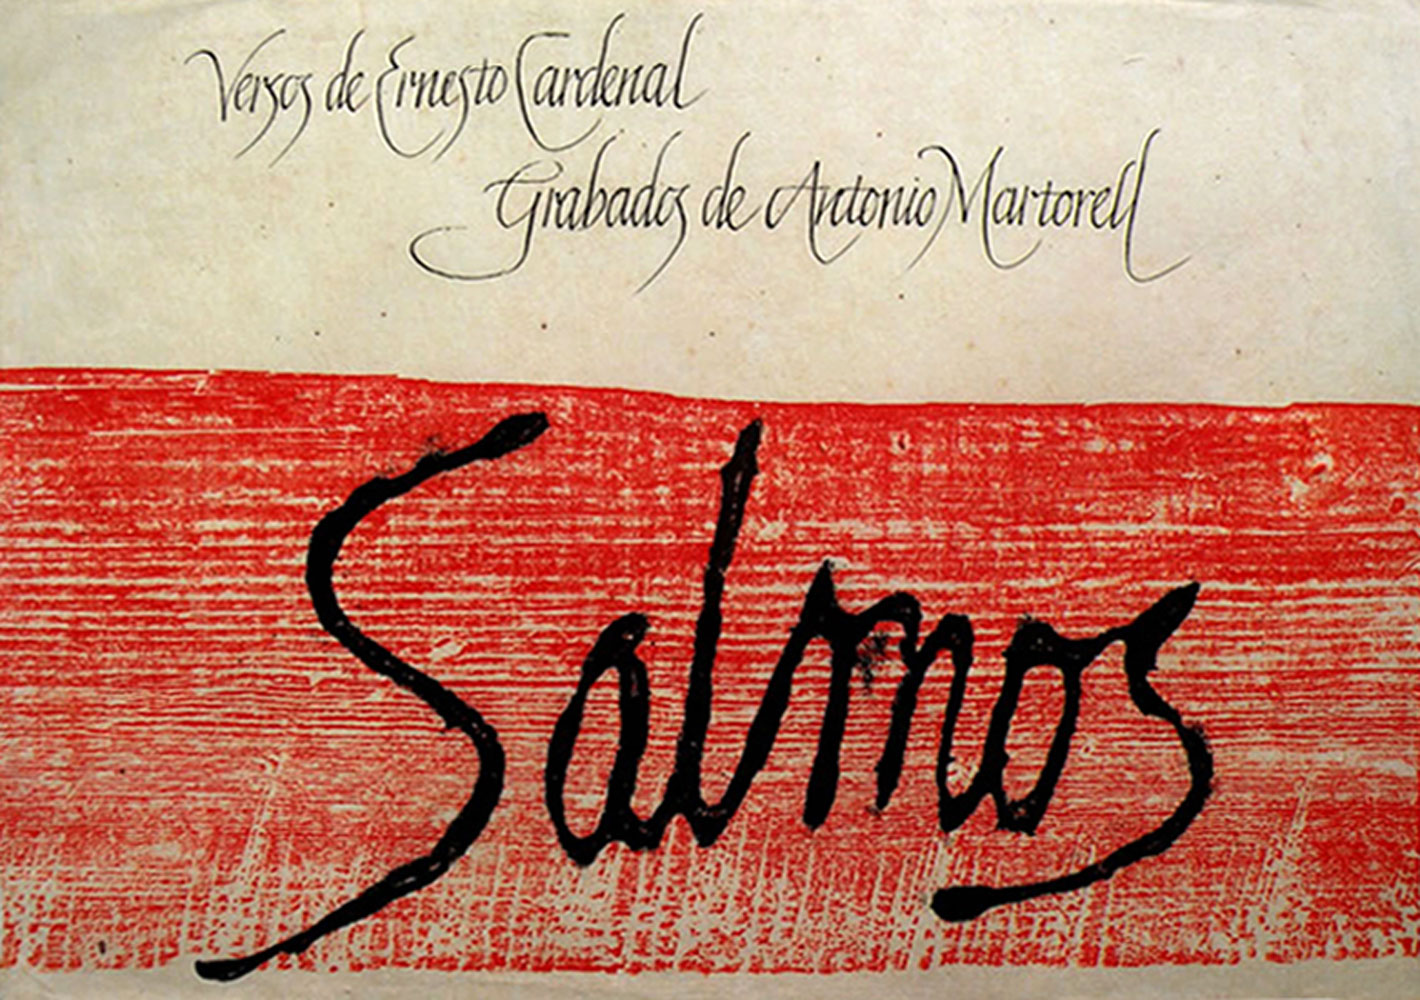 Versos de Ernesto Cardenal
Grabados de Antonio Martorell
Salmos